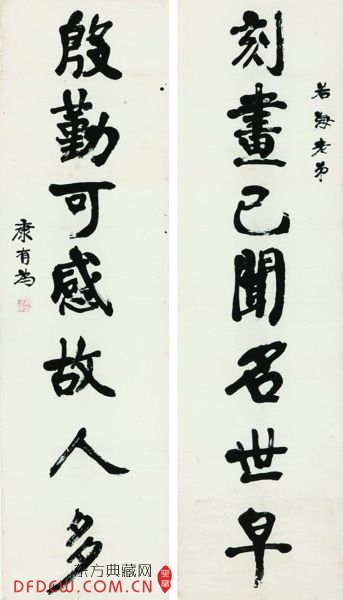 若海老弟
刻畫已聞名世早
殷勤可感故人多
康有為
东方典藏网
DFDCW.COM.CN